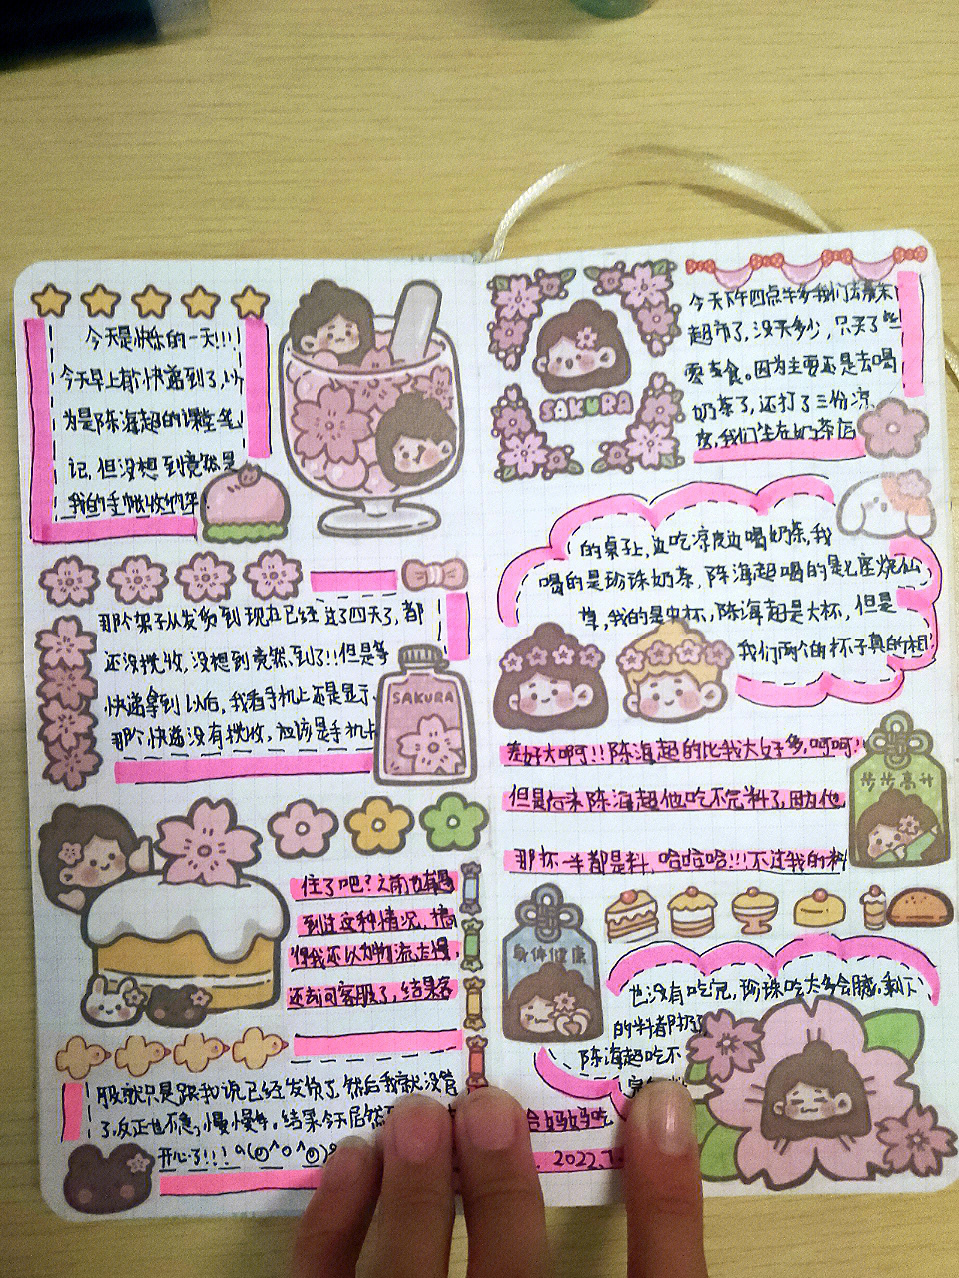 今天是快乐的一天!!!
今天早上有个快递到了,以
为是陈海超的课堂笔
记,但没想到竟然是
我的手帐收纳架
那个架子从发货到现在已经过了四天了,都
还没揽收,没想到竟然到了!!但是等
快递拿到以后,我看手机上还是显示
那个快递没有揽收,应该是手机卡
SAKURA
住了吧?之前也有遇
到过这种情况,搞
得我还以为物流太慢,
还去问客服了,结果客
服就只是跟我说已经发货了,然后我就没管
了,反正也不急,慢慢等。结果今天居然
开心了!!!
SAKURA
今天下午四点半多我们去
超市了,没买多少,只买了些
零食。因为主要还是去喝
奶茶了,还打了三份凉
皮,我们坐在奶茶店
的桌子上,边吃凉皮边喝奶茶,我
喝的是珍珠奶茶,陈海超喝的是烧仙
草,我的是中杯,陈海超是大杯,但是
我们两个的杯子真的相
差好大啊!!陈海超的比我大好多,呵呵!
步步高升
但是后来陈海超他吃不完料了,因为他
那杯一半都是料,哈哈哈!!!不过我的料
身体健康
也没有吃完,珍珠吃太多会腻,剩下
的料都
陈海超吃不
给妈妈吃
2022.7.